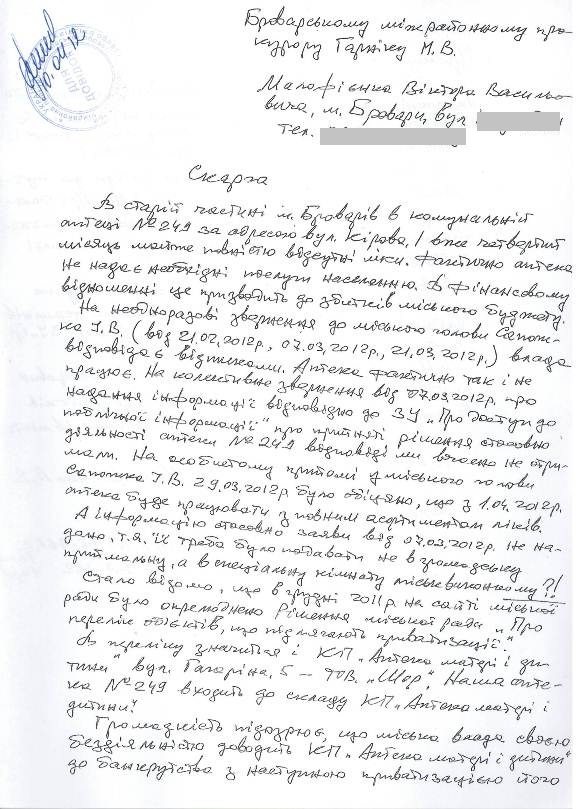 Броварському міжрайонному про-
курору Гарніку М.В.
Малофієнка Віктора Васильо-
вича, м. Бровари, вул
тел.
10.04.12
Скарга
В старій частині м. Броварів в комунальній
аптеці №249 за адресою вул. Кірова, 1 вже четвертий
місяць майже повністю відсутні ліки. Фактично аптека
не надає необхідні послуги населенню. В фінансовому
відношенні це призводить до збитків міського бюджету.
На неодноразові звернення до міського голови Сапож-
ка І.В. (від 21.02.2012р., 07.03.2012р., 21.03.2012р.) влада
відповідає відписками. Аптека фактично так і не
працює. На колективне звернення від 07.03.2012р. про
надання інформації відповідно до ЗУ „Про доступ до
публічної інформації" про прийняті рішення стосовно
діяльності аптеки №249 відповіді ми вчасно не отри-
мали. На особистому прийомі у міського голови
Сапожка І.В. 29.03.2012р. було обіцяно, що з 1.04.2012р.
аптека буде працювати з повним асортиментом ліків.
А інформацію стосовно заяви від 07.03.2012р. не на-
дано, т.я. їх треба було подавати не в громадську
приймальну, а в спеціальну кімнату міськвиконкому?!
Стало відомо, що в грудні 2011р. на сайті міської
ради було оприлюднено Рішення міської ради „Про
перелік об'єктів, що підлягають приватизації".
В переліку значиться і КП „Аптека матері і ди-
тини" вул. Гагаріна, 5 – ТОВ „Шар", Наша апте-
ка №249 входить до складу КП „Аптека матері і
дитини!
Громадкість підозрює, що міська влада своєю
бездіяльністю доводить КП „Аптека матері і дитини"
до банкрутства з наступною приватизацією його